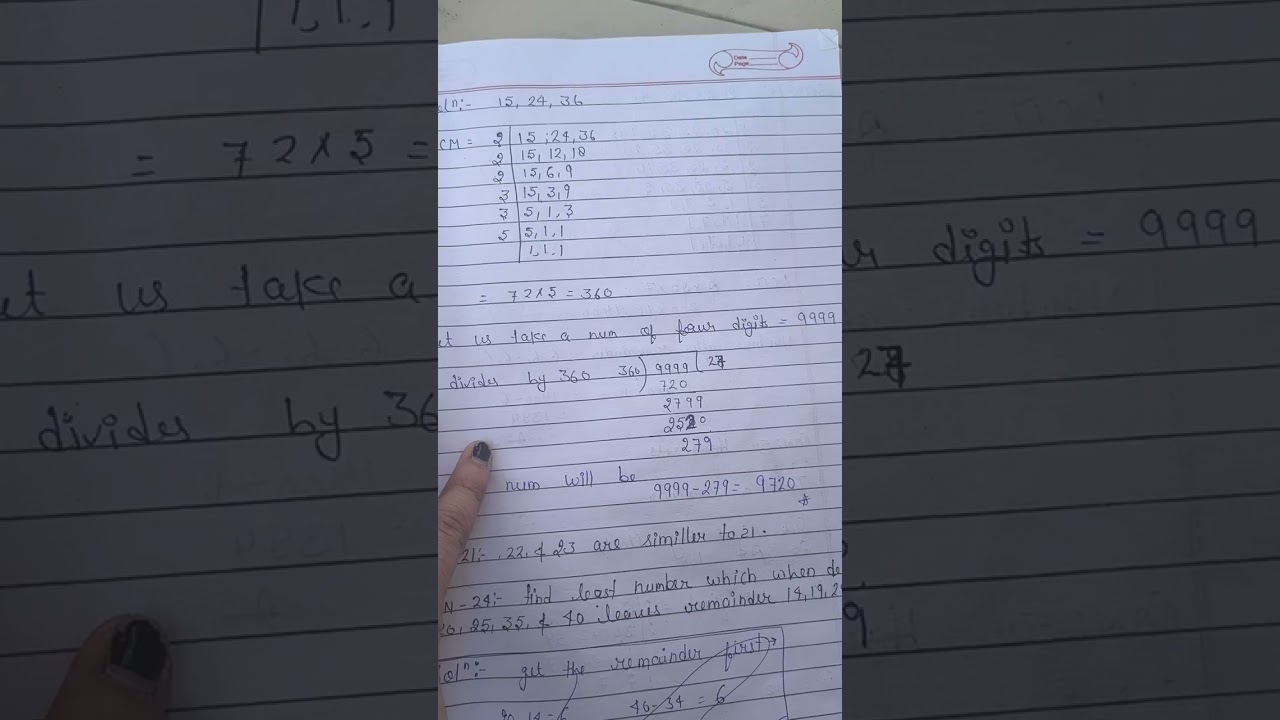 Date
Page
olⁿ:- 15, 24, 36
CM = 2 | 15, 24, 36
2 | 15, 12, 18
2 | 15, 6, 9
3 | 15, 3, 9
3 | 5, 1, 3
5 | 5, 1, 1
1, 1, 1
= 72x5 = 360
et us take a num of four digits = 9999
divides by 360 360) 9999 (27
720
2799
2520
279
num will be 9999-279= 9720
21:- 22, & 23 are similler to 21.
N-24:- find least number which when de
25, 35, & 40 leavis remainder 14, 19, 2
olⁿ:- get the remainder first
40-34 = 6